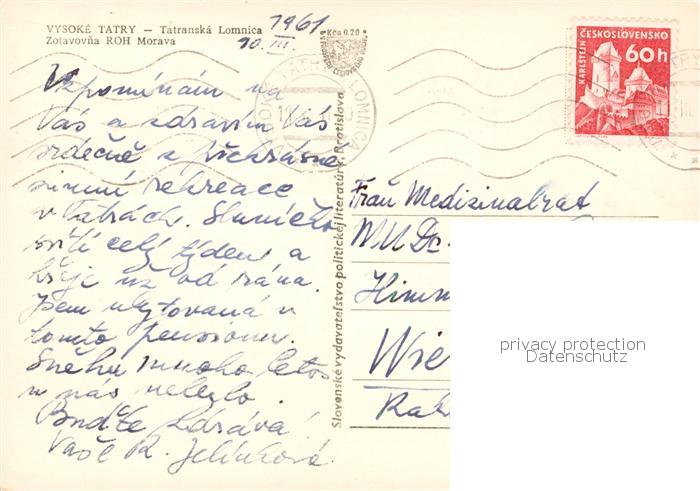 VYSOKÉ TATRY — Tatranská Lomnica
Zotavovňa ROH Morava
1961
10. III.
Kčs 0.20
ČESKOSLOVENSKO
KARLŠTEJN
60 h
LOMNICA
Vzpomínám na
Vás a zdravím Vás
srdečně z překrásné
zimní rekreace
v Tatrách. Sluníčko
svítí celý týden a
hřeje už od rána.
Jsem ubytovaná v
tomto pensionu.
Sněhu mnoho letos
u nás nebylo.
Buďte zdráva!
Vaše R. Jelínková
Slovenské vydavateľstvo politickej literatúry, Bratislava
Frau Medizinalrat
MUDr.
Himm
Wie
privacy protection
Datenschutz